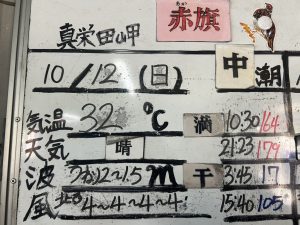 赤旗
真栄田岬
10/12(日) 中潮
気温 32℃ 満 10:30 164
天気 晴 21:23 179
波 1.5m 干 3:45 17
風 4~4~4~4 15:40 105